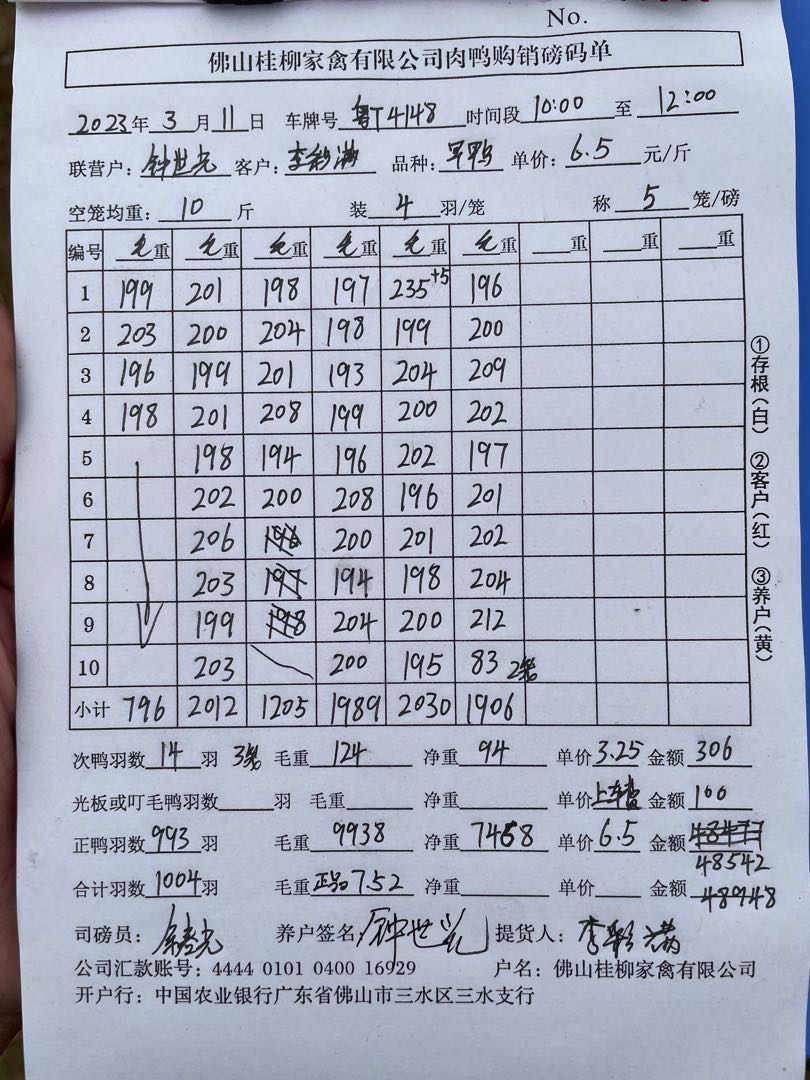 No.
佛山桂柳家禽有限公司肉鸭购销磅码单
2023年 3 月 11 日 车牌号 粤T4148 时间段 10:00 至 12:00
联营户: 钟世光 客户: 李彩满 品种: 单价: 6.5 元/斤
空笼均重: 10 斤 装 4 羽/笼 称 5 笼/磅
编号 毛重 毛重 毛重 毛重 毛重 毛重 重 重 重
1 199 201 198 197 235+5 196
2 203 200 204 198 199 200
3 196 199 201 193 204 209
4 198 201 208 199 200 202
5 198 194 196 202 197
6 202 200 208 196 201
7 206 196 200 201 202
8 203 197 194 198 204
9 199 198 204 200 212
10 203 200 195 83 2笼
小计 796 2012 1205 1989 2030 1906
次鸭羽数 14 羽 3笼 毛重 124 净重 94 单价 3.25 金额 306
光板或叮毛鸭羽数 羽 毛重 净重 单价 上车费 金额 100
正鸭羽数 993 羽 毛重 9938 净重 7458 单价 6.5 金额 48477
48542
合计羽数 1004 羽 毛重 正品 7.52 净重 单价 金额 48948
司磅员: 养户签名 钟世光 提货人: 李彩满
公司汇款账号: 4444 0101 0400 16929 户名: 佛山桂柳家禽有限公司
开户行: 中国农业银行广东省佛山市三水区三水支行
①存根(白) ②客户(红) ③养户(黄)